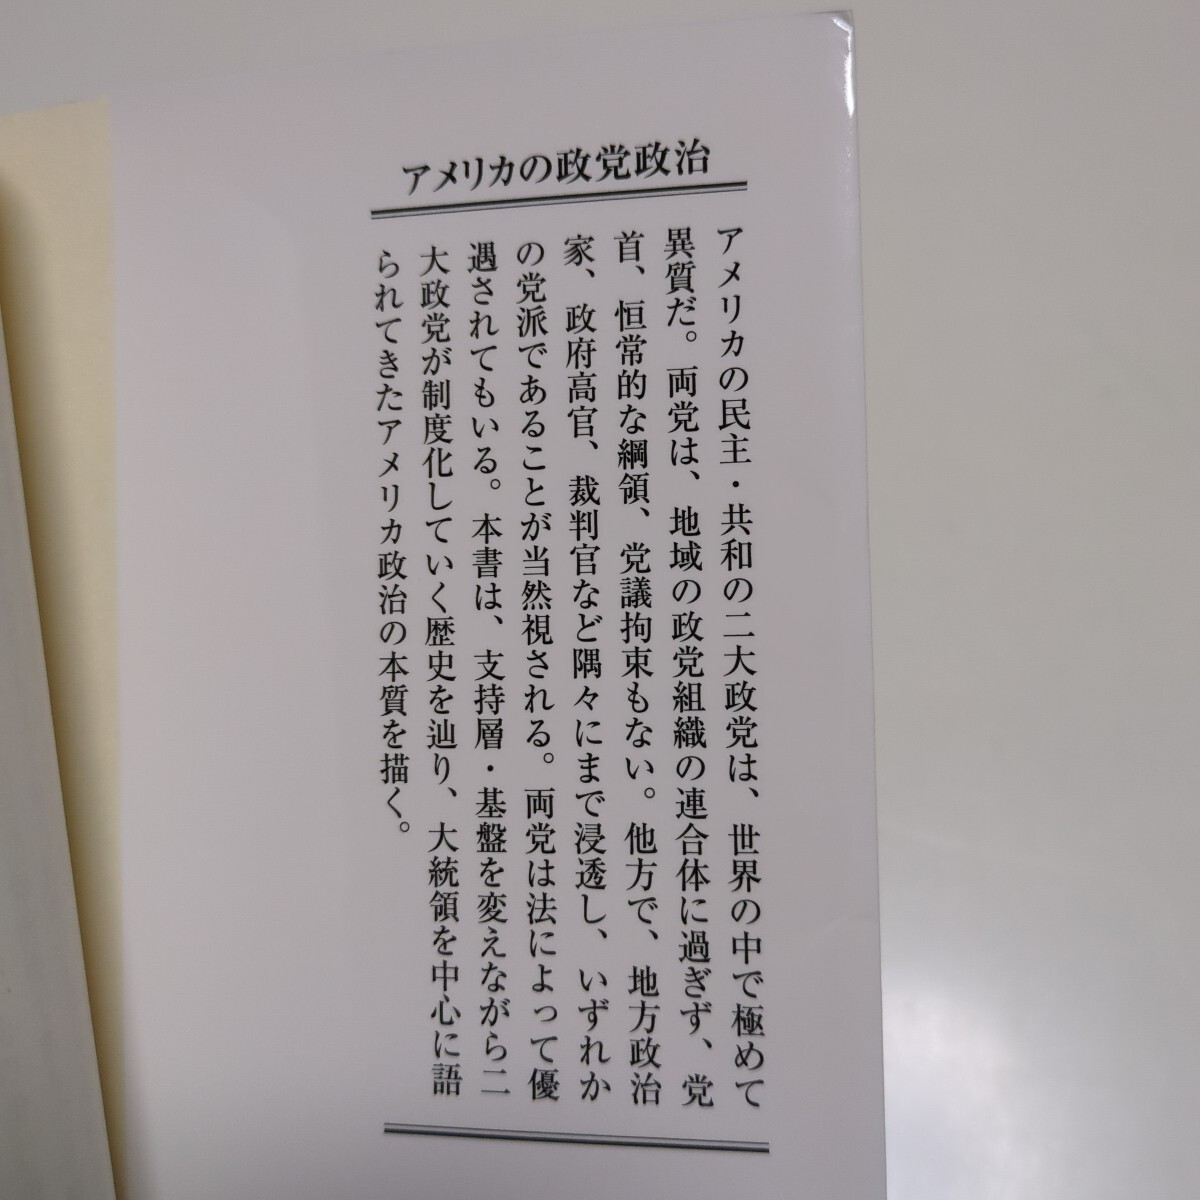 アメリカの政党政治
アメリカの民主・共和の二大政党は、世界の中で極めて
異質だ。両党は、地域の政党組織の連合体に過ぎず、党
首、恒常的な綱領、党議拘束もない。他方で、地方政治
家、政府高官、裁判官など隅々にまで浸透し、いずれか
の党派であることが当然視される。両党は法によって優
遇されてもいる。本書は、支持層・基盤を変えながら二
大政党が制度化していく歴史を辿り、大統領を中心に語
られてきたアメリカ政治の本質を描く。